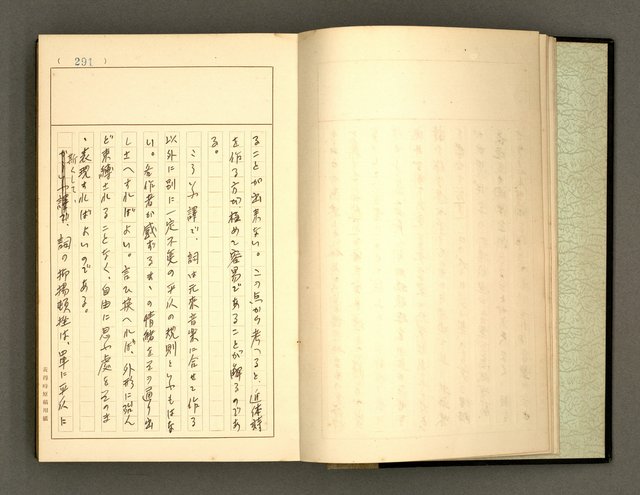 （291）
ること가出来ない。この点から考へると、近体詩
を作る方が極めて容易であることが解るのであ
る。
こういふ譯で、詞は元来音楽に合せて作る
以外に別に一定不変の平仄の規則といふものはな
い。各作者が感わるまゝの情緒をその通り出
し土へすればよい。言ひ換へれば、外形に殆ん
ど束縛されることなく、自由に思ふ處をそのま
ゝ表現すればよいのである。
斯くして、
詞の抑揚頓挫は、単に平仄に
黄得時原稿用紙